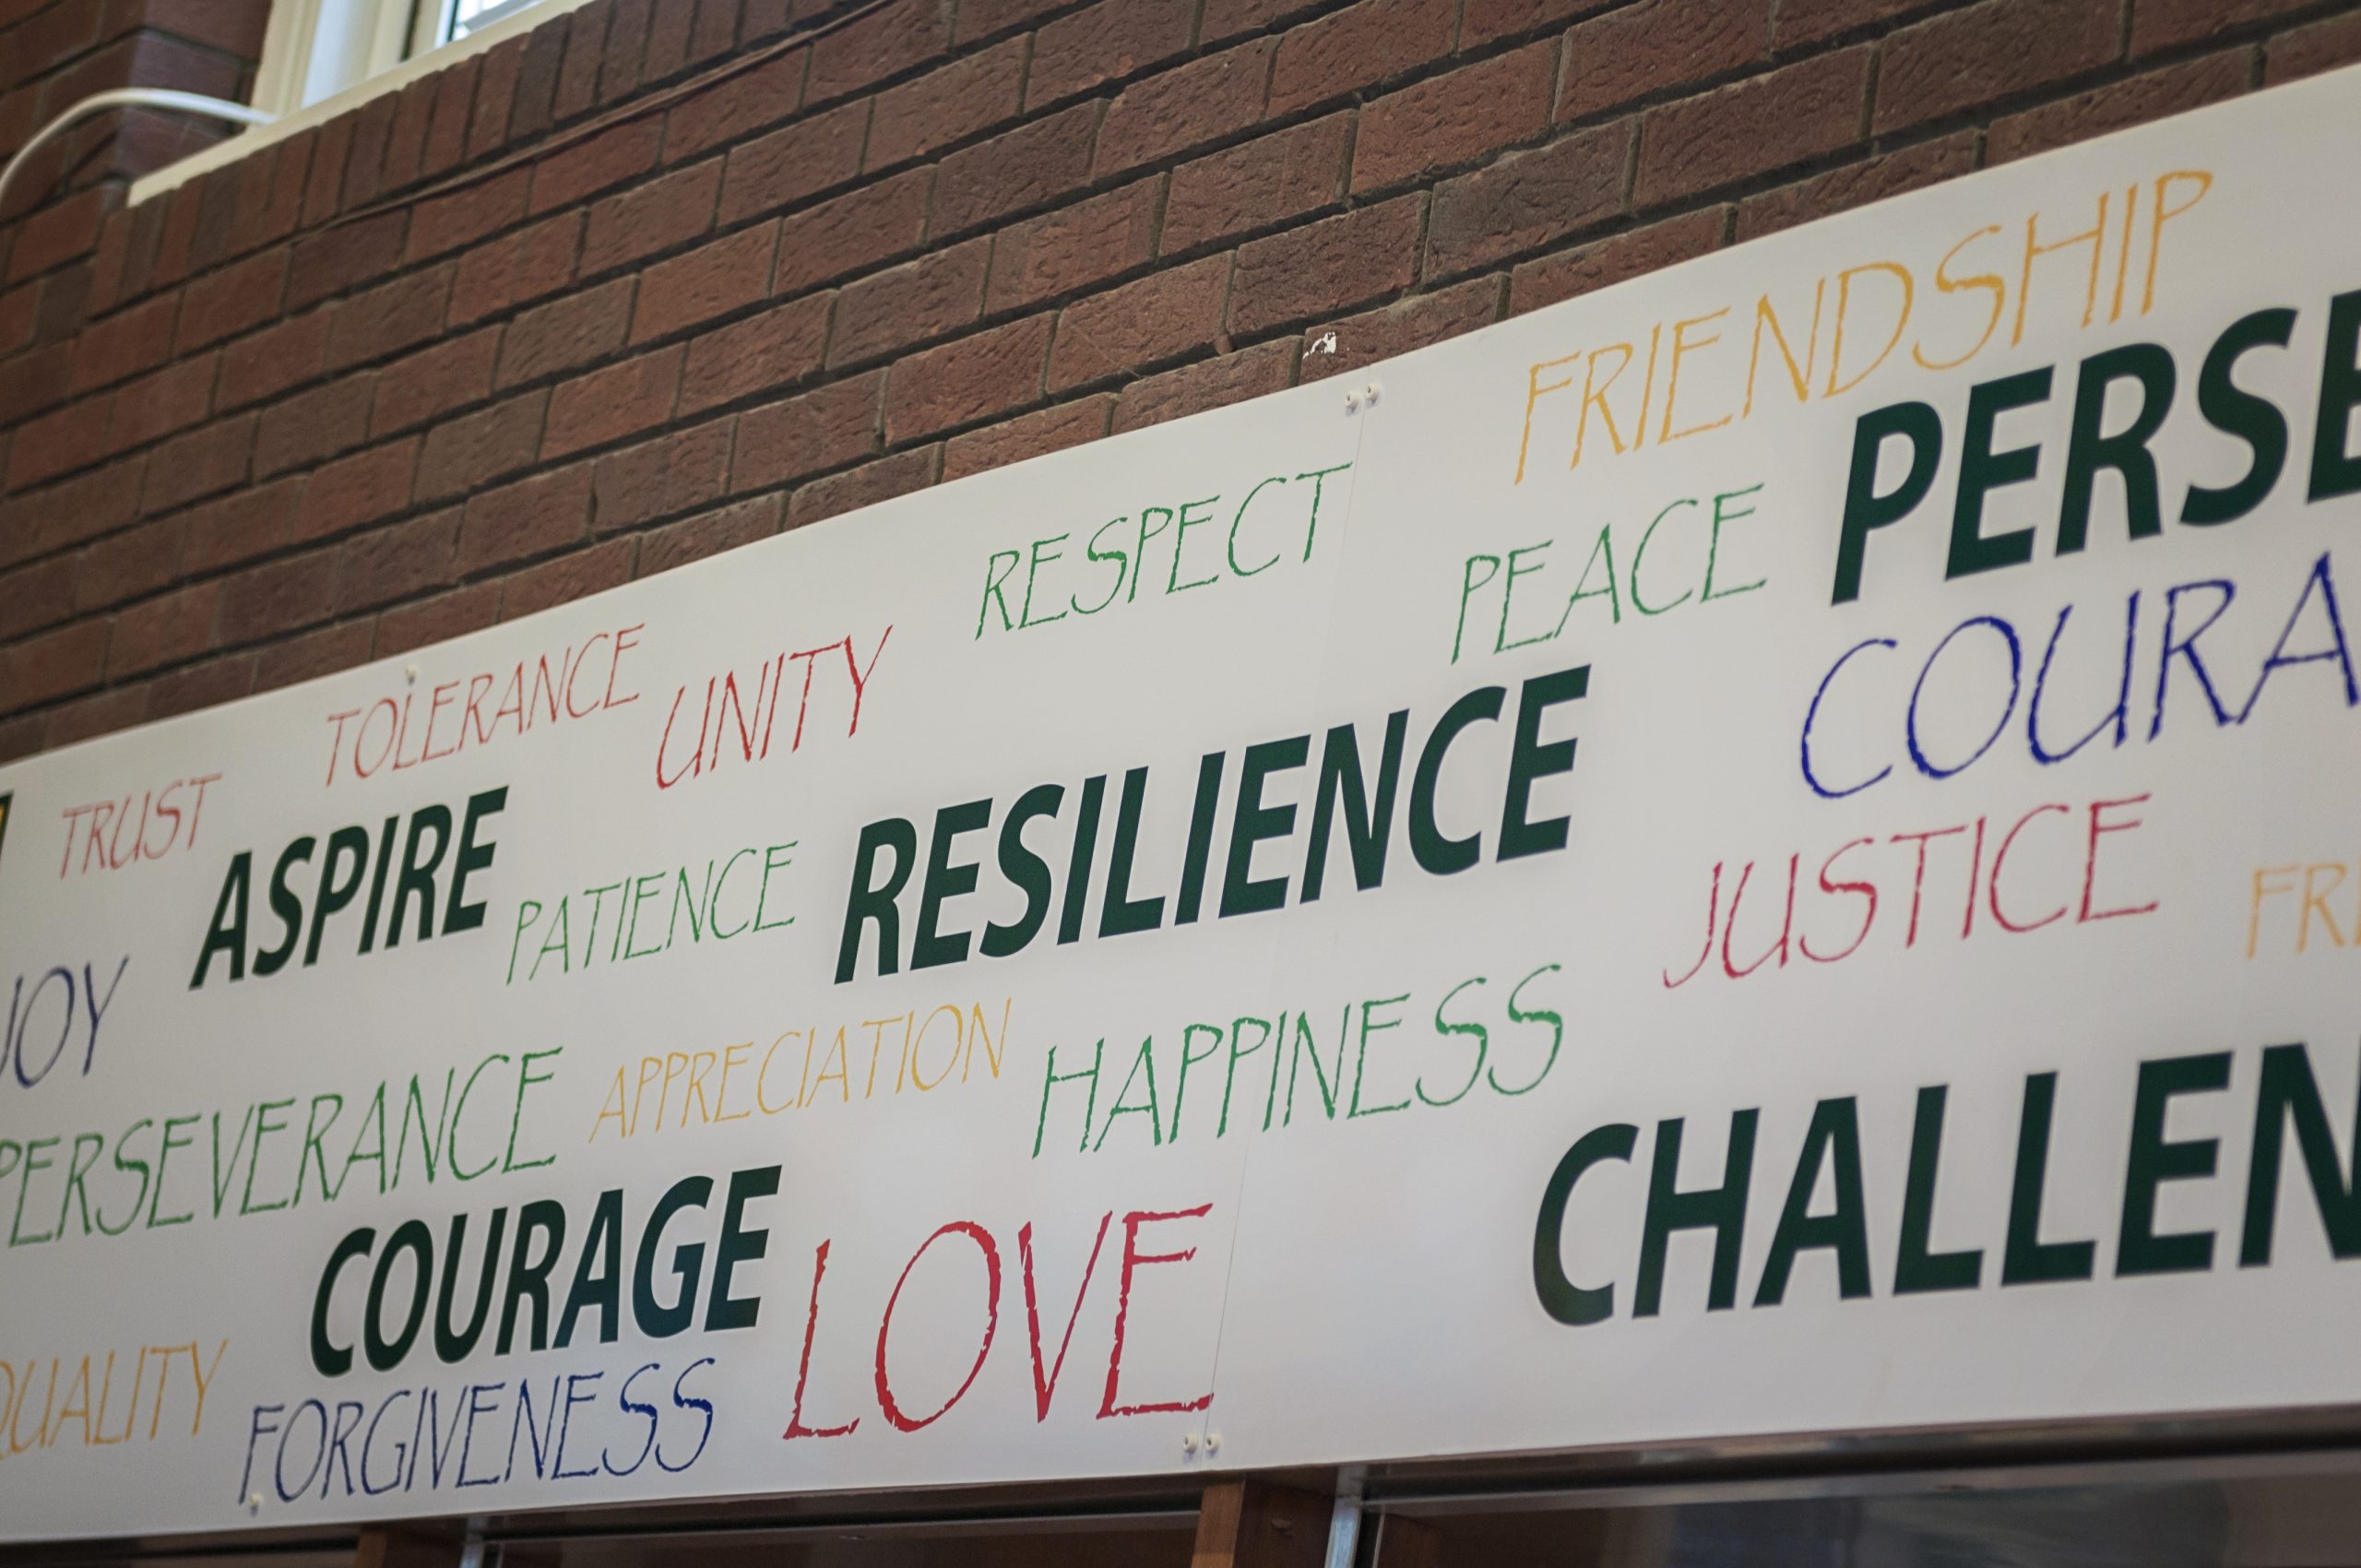 FRIENDSHIP
RESPECT
PEACE
PERSE
TOLERANCE
UNITY
TRUST
ASPIRE
PATIENCE
RESILIENCE
COURA
JOY
JUSTICE
FRI
PERSEVERANCE
APPRECIATION
HAPPINESS
COURAGE
LOVE
CHALLEN
QUALITY
FORGIVENESS